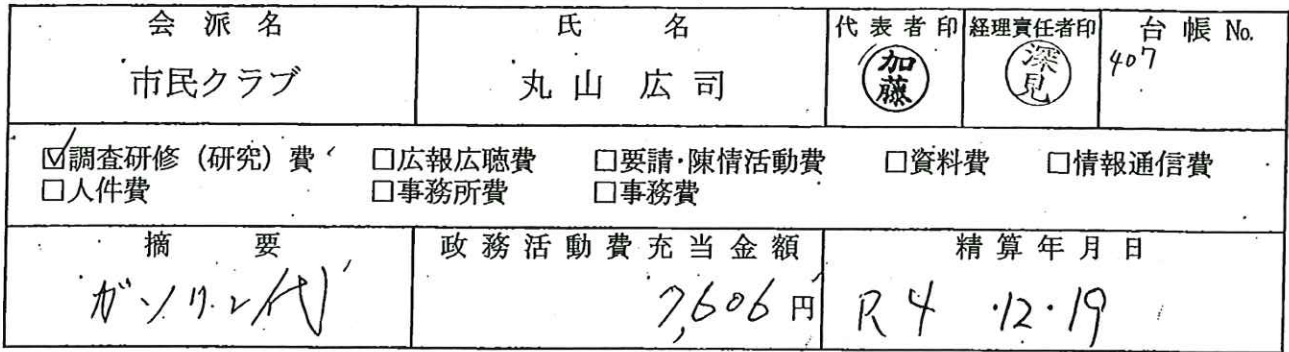 会派名 氏名 代表者印 経理責任者印 台帳No.
市民クラブ 丸山 広司 加藤 深見 407
☑調査研修(研究)費 □広報広聴費 □要請・陳情活動費 □資料費 □情報通信費
□人件費 □事務所費 □事務費
摘要 政務活動費充当金額 精算年月日
ガソリン代 7,606円 R4・12・19